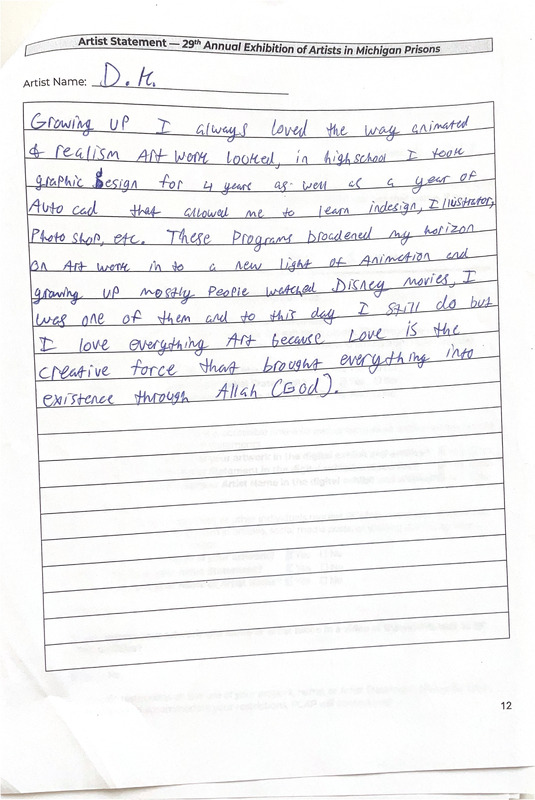 Artist Statement — 29th Annual Exhibition of Artists in Michigan Prisons
Artist Name: D.H.
Growing up I always loved the way animated
& realism Art work looked, in highschool I took
graphic Design for 4 years as well as a year of
Auto cad that allowed me to learn indesign, Illustrator,
Photo shop, etc. These Programs broadened my horizon
on Art work in to a new light of Animation and
growing up mostly People watched Disney movies, I
was one of them and to this day I still do but
I love everything Art because Love is the
creative force that brought everything into
existence through Allah (God).
12